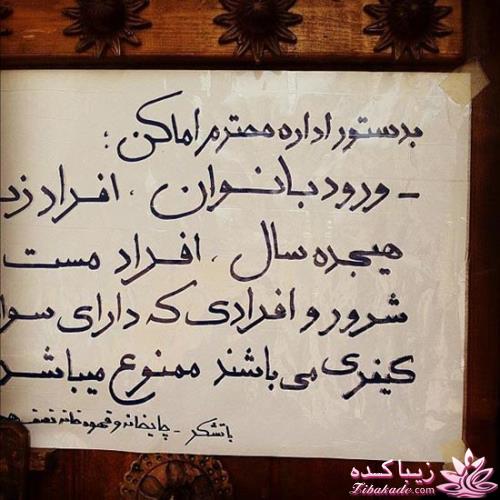 بدستور اداره محترم اماکن :
- ورود بانوان ، افراد زیر
هیجده سال ، افراد مست
شرور و افرادی که دارای سوا
کیفری می باشند ممنوع میباشد
باتشکر - چایخانه و قهوه خانه
زیباکده
Zibakade.com